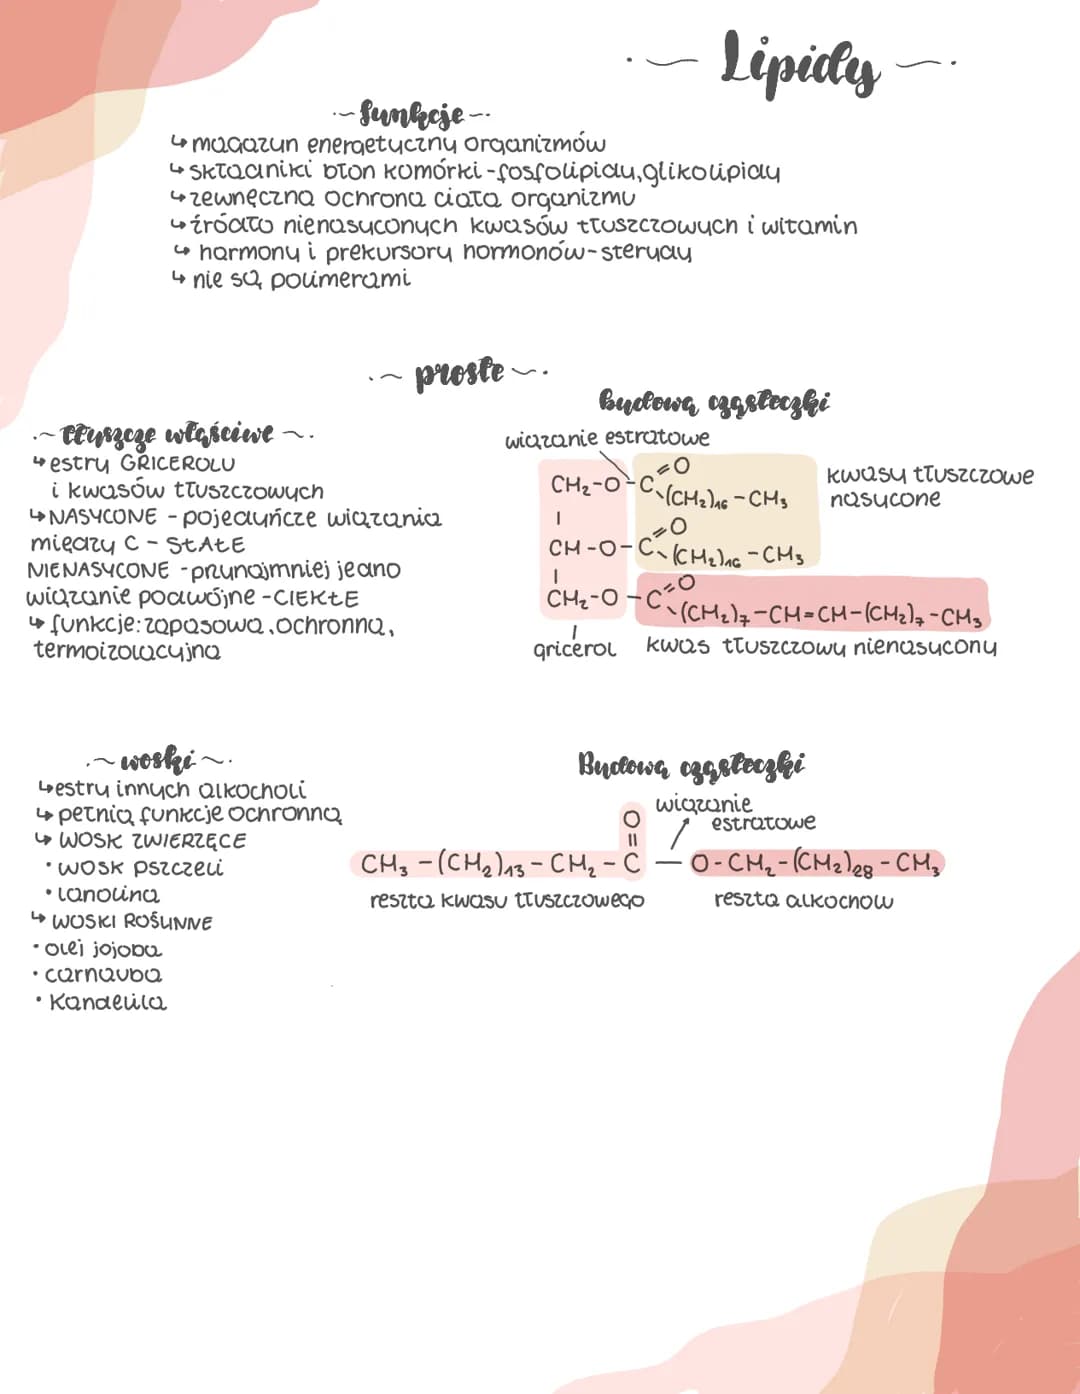 Lipidy
funkcje
↳ magazyn energetyczny organizmów
↳ składniki błon komórki - fosfolipidy, glikolipidy
↳ zewnęczna ochrona ciała organizmu
↳ źródło nienasyconych kwasów tłuszczowych i witamin
↳ harmony i prekursory hormonów - sterydy
↳ nie są polimerami
proste
tłuszcze właściwe
↳ estry GRICEROLU
i kwasów tłuszczowych
↳ NASYCONE - pojedyńcze wiązania
między C - STAŁE
NIENASYCONE - przynajmniej jedno
wiązanie podwójne - CIEKŁE
↳ funkcje: zapasowa, ochronna,
termoizolacyjna
Budową cząsteczki
wiązanie estratowe
CH₂-O-C=O
\(CH₂)₁₆-CH₃
kwasy tłuszczowe
nasycone
CH-O-C=O
\(CH₂)₁₆-CH₃
CH₂-O-C=O
\(CH₂)₇-CH=CH-(CH₂)₇-CH₃
gricerol
kwas tłuszczowy nienasycony
woski
↳ estry innych alkocholi
↳ pełnią funkcje ochronną
↳ WOSK ZWIERZĘCE
• wosk pszczeli
• lanolina
↳ WOSKI ROŚLINNE
• olej jojoba
• carnauba
• Kandelila
Budową cząsteczki
wiązanie
estratowe
O
||
CH₃-(CH₂)₁₃-CH₂-C — O-CH₂-(CH₂)₂₈-CH₃
reszta kwasu tłuszczowego
reszta alkocholu